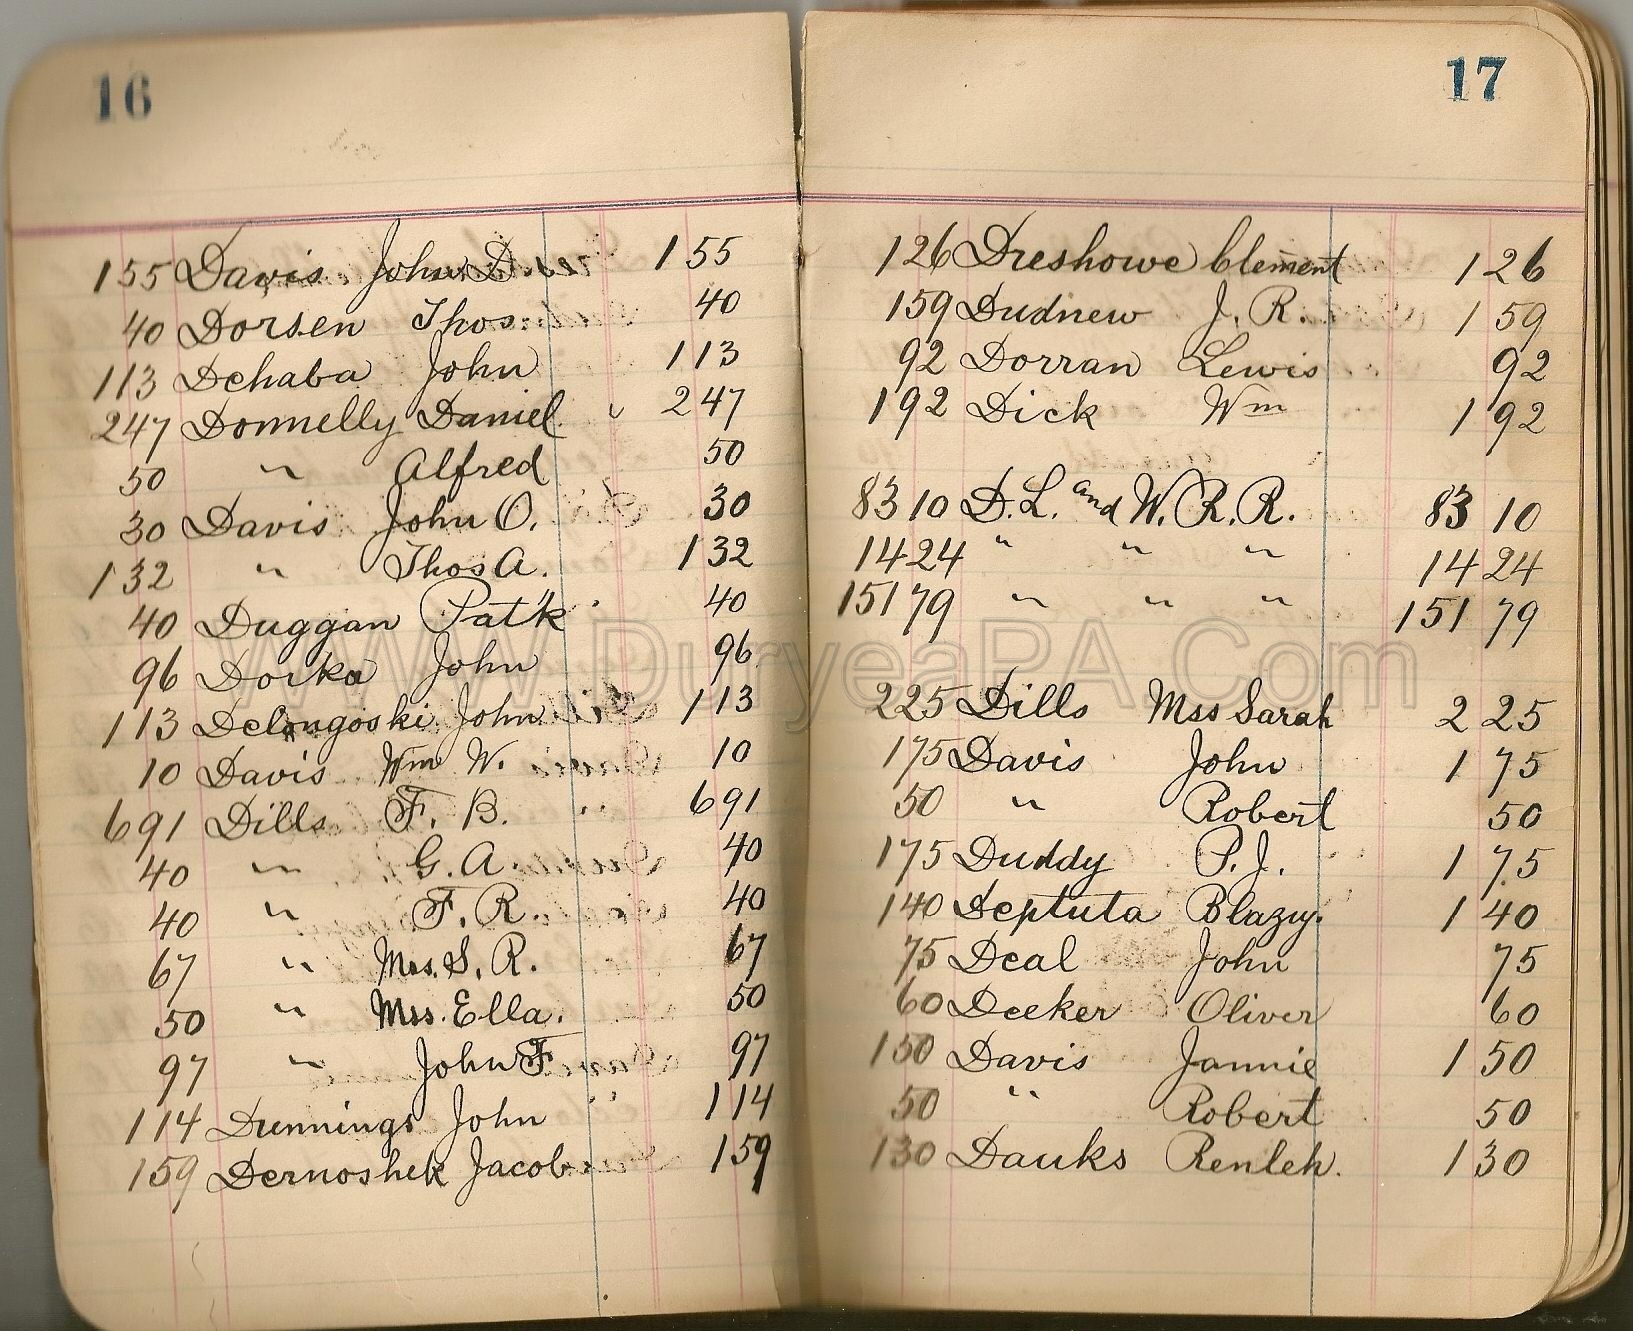 16
155 Davis John D. 155
40 Dorsen Thos. 40
113 Dchaba John 113
247 Donnelly Daniel 247
50 " Alfred 50
30 Davis John O. 30
132 " Thos A. 132
40 Duggan Pat'k 40
96 Dorka John 96
113 Delongoski John 113
10 Davis Wm W. 10
691 Dills F. B. 691
40 " G. A. 40
40 " F. R. 40
67 " Mrs. S. R. 67
50 " Mrs. Ella. 50
97 " John F 97
114 Dunnings John 114
159 Dernoshek Jacob 159
17
126 Dreshowe Clement 126
159 Dudnew J. R. 159
92 Dorran Lewis 92
192 Dick Wm 192
83 10 D. L. and W. R. R. 83 10
14 24 " " " 14 24
151 79 " " " 151 79
225 Dills Mss Sarah 2 25
175 Davis John 1 75
50 " Robert 50
175 Duddy P. J. 1 75
140 Deptuta Blazy. 1 40
75 Deal John 75
60 Deeker Oliver 60
150 Davis Jannie 1 50
50 " Robert 50
130 Dauks Renleh. 1 30
WWW.DuryeaPA.Com